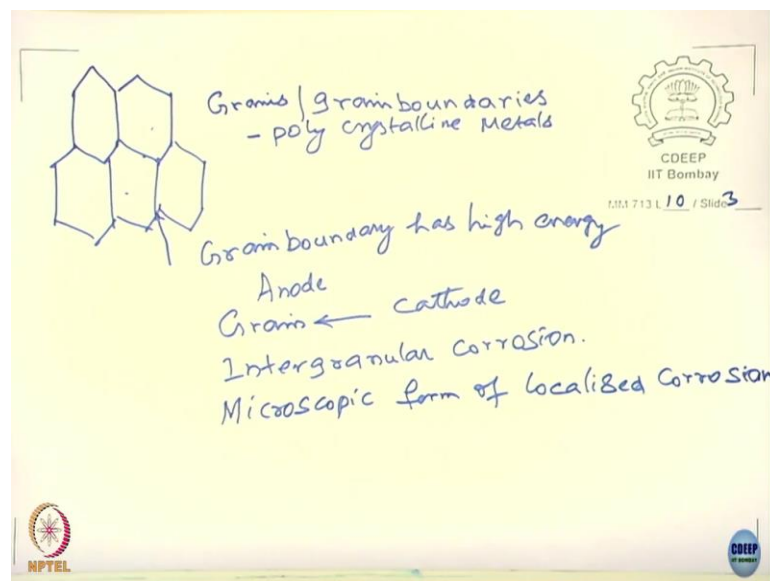 Grains / grain boundaries
- poly crystalline Metals
CDEEP
IIT Bombay
MM 713 L 10 / Slide 3
Grain boundary has high energy
Anode
Grain ← Cathode
Intergranular Corrosion.
Microscopic form of localised Corrosion
NPTEL
CDEEP
IIT BOMBAY